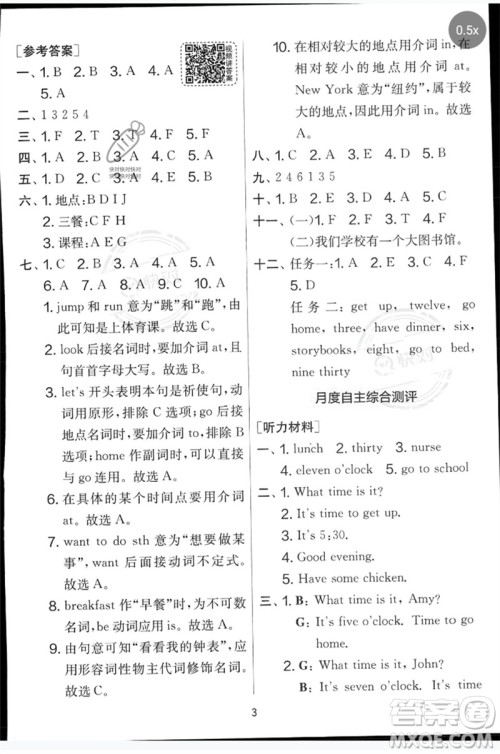 0.5x
[参考答案]
视频讲答案
一、1. B 2. A 3. A 4. A
5. A
二、1 3 2 5 4
三、1. F 2. T 3. F 4. T
四、1. B 3. A 4. C 5. A
五、1. D 3. A 4. C 5. B
快对快对快对
六、1. 地点:B D I J
2. 三餐:C F H
3. 课程:A E G
七、1. C 2. A 3. B 4. A 5. C
6. A 7. A 8. A 9. A 10. A
1. jump和run意为“跳”和“跑”,故
推测出是上体育课。故选C。
2. look后接名词时,要加介词at,且
句首首字母大写。故选A。
3. let's开头表明本句是祈使句,动
词用原形,排除C选项;go后接
地点名词时,要加介词to,排除A
选项;home作副词时,可以直接
与go连用。故选B。
4. 在具体的某个时刻前用介词
at。故选A。
7. want to do sth意为“想要做某
事”,want后面接动词不定式。故
选A。
8. breakfast作“早餐”时,为不可数
名词,be动词应用is。故选A。
9. 由句意可知“看看我的钟表”,应
用形容词性物主代词修饰名词。
故选A。
10. 在相对较大的地点用介词in,在
相对较小的地点用介词at。
New York意为“纽约”,属于较
大的地点,因此用介词in。故选
A。
八、1. B 2. D 3. E 4. A 5. C
九、2 4 6 1 3 5
十、1. C 2. B 3. A 4. C 5. B
十一、(一)1. F 2. T 3. T 4. F
(二)我们学校有一个大图书馆。
十二、任务一:1. F 2. A 3. C 4. E
5. D
任务二:get up, twelve, go
home, three, have dinner, six,
storybooks, eight, go to bed,
nine thirty
月度自主综合测评
[听力材料]
一、1. lunch 2. thirty 3. nurse
4. eleven o'clock 5. go to school
二、1. What time is it?
2. It's time to get up.
3. It's 5:30.
4. Good evening.
5. Have some chicken.
三、1. B: What time is it, Amy?
G: It's five o'clock. Time to go
home.
2. G: What time is it, John?
B: It's seven o'clock. It's time
3
答案圈
MXQE.COM